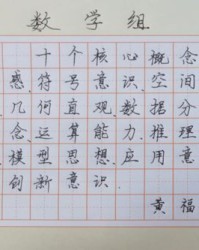 数学组
十个核心概念
感、符号意识、空间
几何直观、数据分
念、运算能力、推理
模型思想、应用意
创新意识.
黄福